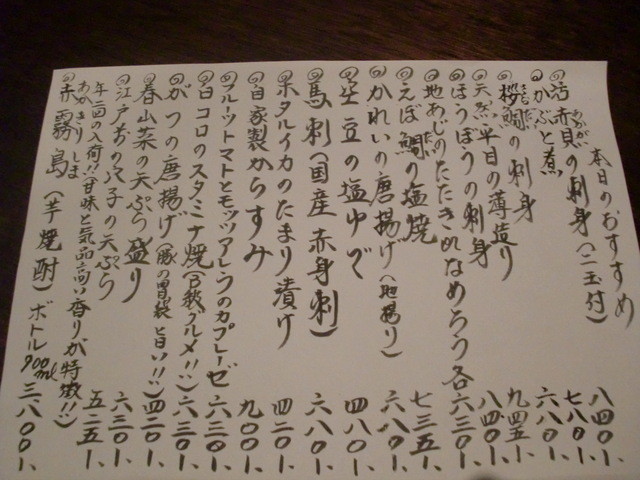 本日のおすすめ
◎活赤貝の刺身(二玉付) 八四〇-、
あかがい
◎かぶと煮 七八〇-、
◎桜鯛の刺身 六八〇-、
さくらだい
◎天然平目の薄造り 九四五-、
◎ほうぼうの刺身 八四〇-、
◎地あじのたたきorなめろう各 六三〇-、
◎えぼ鯛の塩焼 七三五-、
だい
◎かれいの唐揚げ(地揚り) 六八〇-、
◎空豆の塩ゆで 四八〇-、
◎馬刺(国産赤身刺) 六八〇-、
◎ホタルイカのたまり漬け 四二〇-、
◎自家製からすみ 九〇〇-、
◎フルーツトマトとモッツアレラのカプレーゼ 六三〇-、
◎白コロのスタミナ焼(B級グルメ!!) 六三〇-、
◎がつの唐揚げ(豚の胃袋 旨い!!) 四二〇-、
◎春山菜の天ぷら盛り 六三〇-、
◎江戸前の穴子の天ぷら 五二五-、
年二回の入荷!!(甘味と気品高い香りが特徴!!)
あかきりしま
◎赤霧島(芋焼酎)ボトル900ml 三八〇〇-、